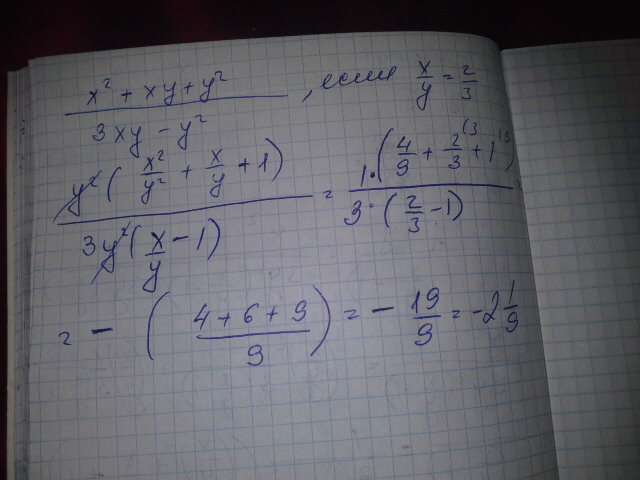 x² + xy + y² / 3xy - y² , если x/y = 2/3
y² ( x²/y² + x/y + 1 ) / 3y² ( x/y - 1 ) = 1 · ( 4/9 + 2/3 (3 + 1 (9 ) / 3 · ( 2/3 - 1 ) =
= - ( 4 + 6 + 9 / 9 ) = - 19/9 = -2 1/9